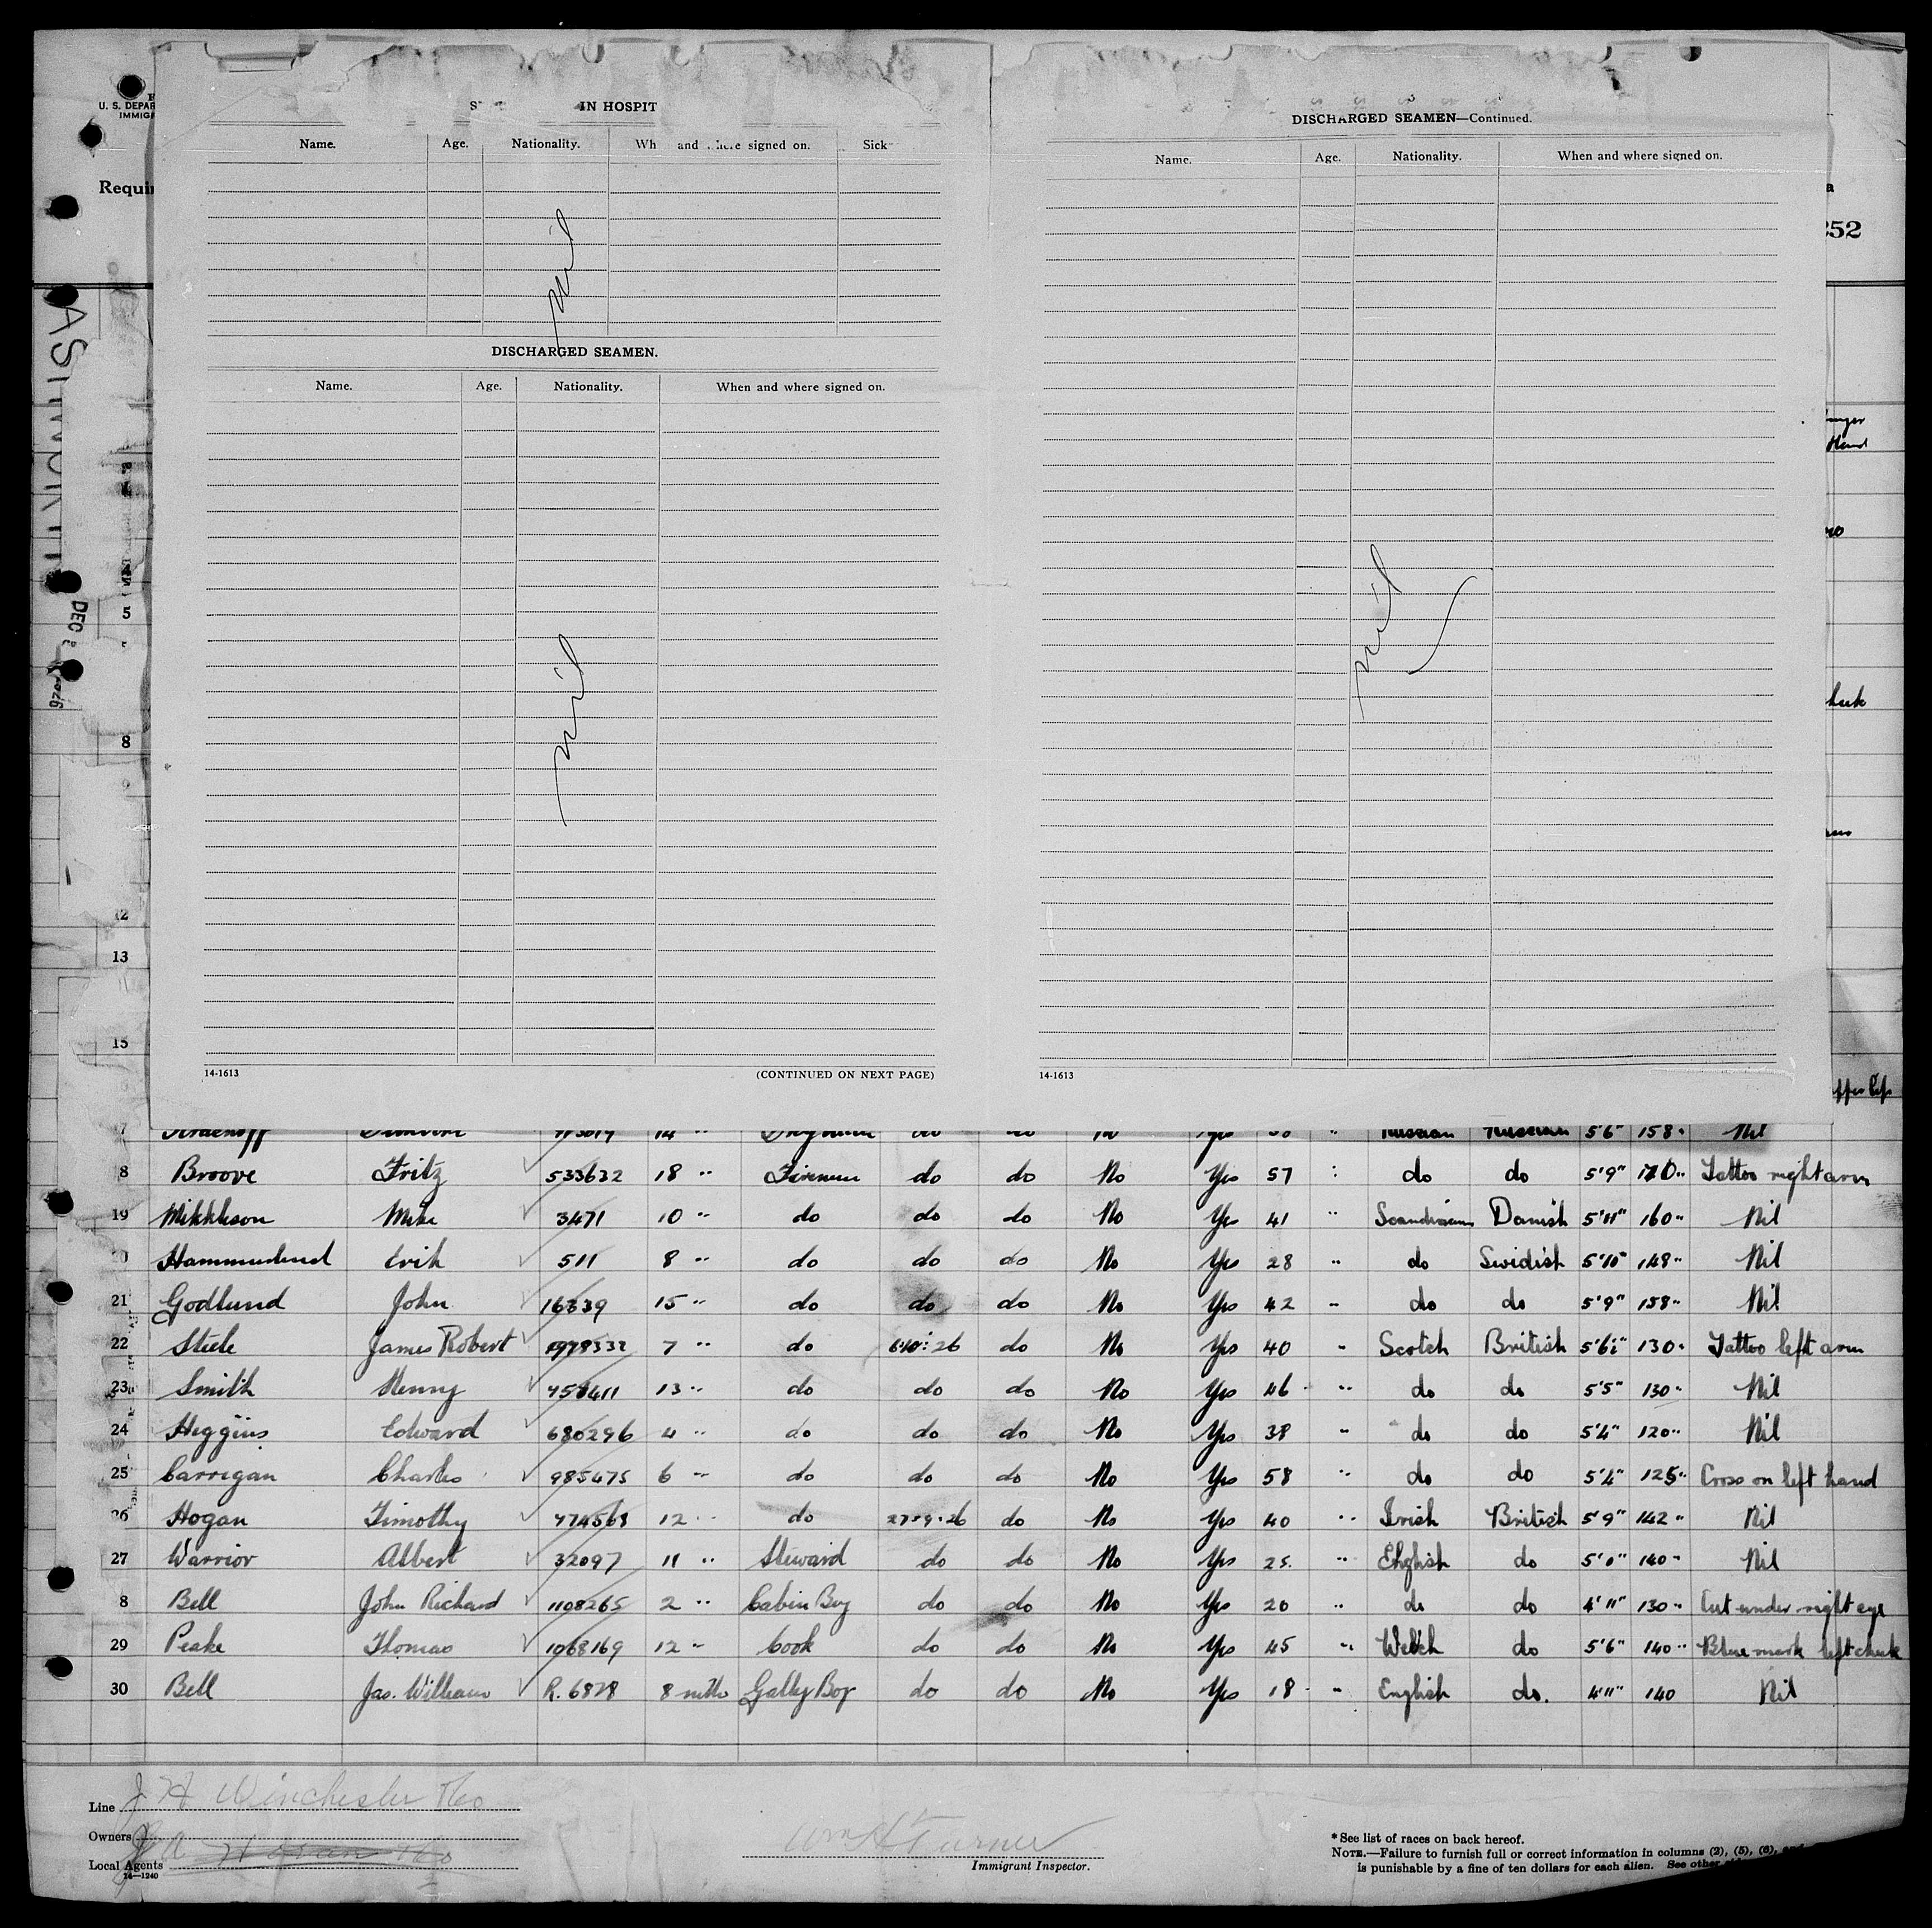 U. S. DEPAR
IMMIG
Requi
252
IN HOSPIT
Name. Age. Nationality. Wh and here signed on. Sick
Nil
DISCHARGED SEAMEN.
Name. Age. Nationality. When and where signed on.
Nil
14-1613 (CONTINUED ON NEXT PAGE)
DISCHARGED SEAMEN—Continued.
Name. Age. Nationality. When and where signed on.
Nil
14-1613
DEC
5
8
12
13
15
7 14 " do do No Yes " Russian Russian 5'6" 158" Nil
8 Broove Fritz 533632 18 " Fireman do do No Yes 57 " do do 5'9" 170" Tattoo right arm
19 Mikkleson Mike 3471 10 " do do do No Yes 41 " Scandinavian Danish 5'11" 160" Nil
20 Hammerlund Erik 511 8 " do do do No Yes 28 " do Swidish 5'10" 148" Nil
21 Godlund John 16339 15 " do do do No Yes 42 " do do 5'9" 158" Nil
22 Steele James Robert 7 " do do No Yes 40 " Scotch British 130" Tattoo left arm
23 Smith Henry 13 " do do do No Yes 46 " do do 5'5" 130" Nil
24 Heggins Edward 680296 4 " do do do No Yes 38 " do do 5'4" 120" Nil
25 Carrigan Charles 985475 6 " do do do No Yes 58 " do do 5'4" 125" Cross on left hand
26 Hogan Timothy 474568 12 " do 27.9.26 do No Yes 40 " Irish British 5'9" 142" Nil
27 Warrior Albert 32097 11 " Steward do do No Yes 25 " English do 5'0" 140" Nil
8 Bell John Richard 1108265 2 " Cabin Boy do do No Yes 20 " do do 4'11" 130" Cut under right eye
29 Peake Thomas 1068169 12 " Cook do do No Yes 45 " Welch do 5'6" 140" Blue mark left cheek
30 Bell Jas. William R. 6828 8 mths Gally Boy do do No Yes 18 " English do. 4'11" 140 Nil
Line J H Winchester & Co
Owners
Local Agents
14—1240
Wm H Turner
Immigrant Inspector.
* See list of races on back hereof.
NOTE.—Failure to furnish full or correct information in columns (2), (5), (6), and
is punishable by a fine of ten dollars for each alien. See other